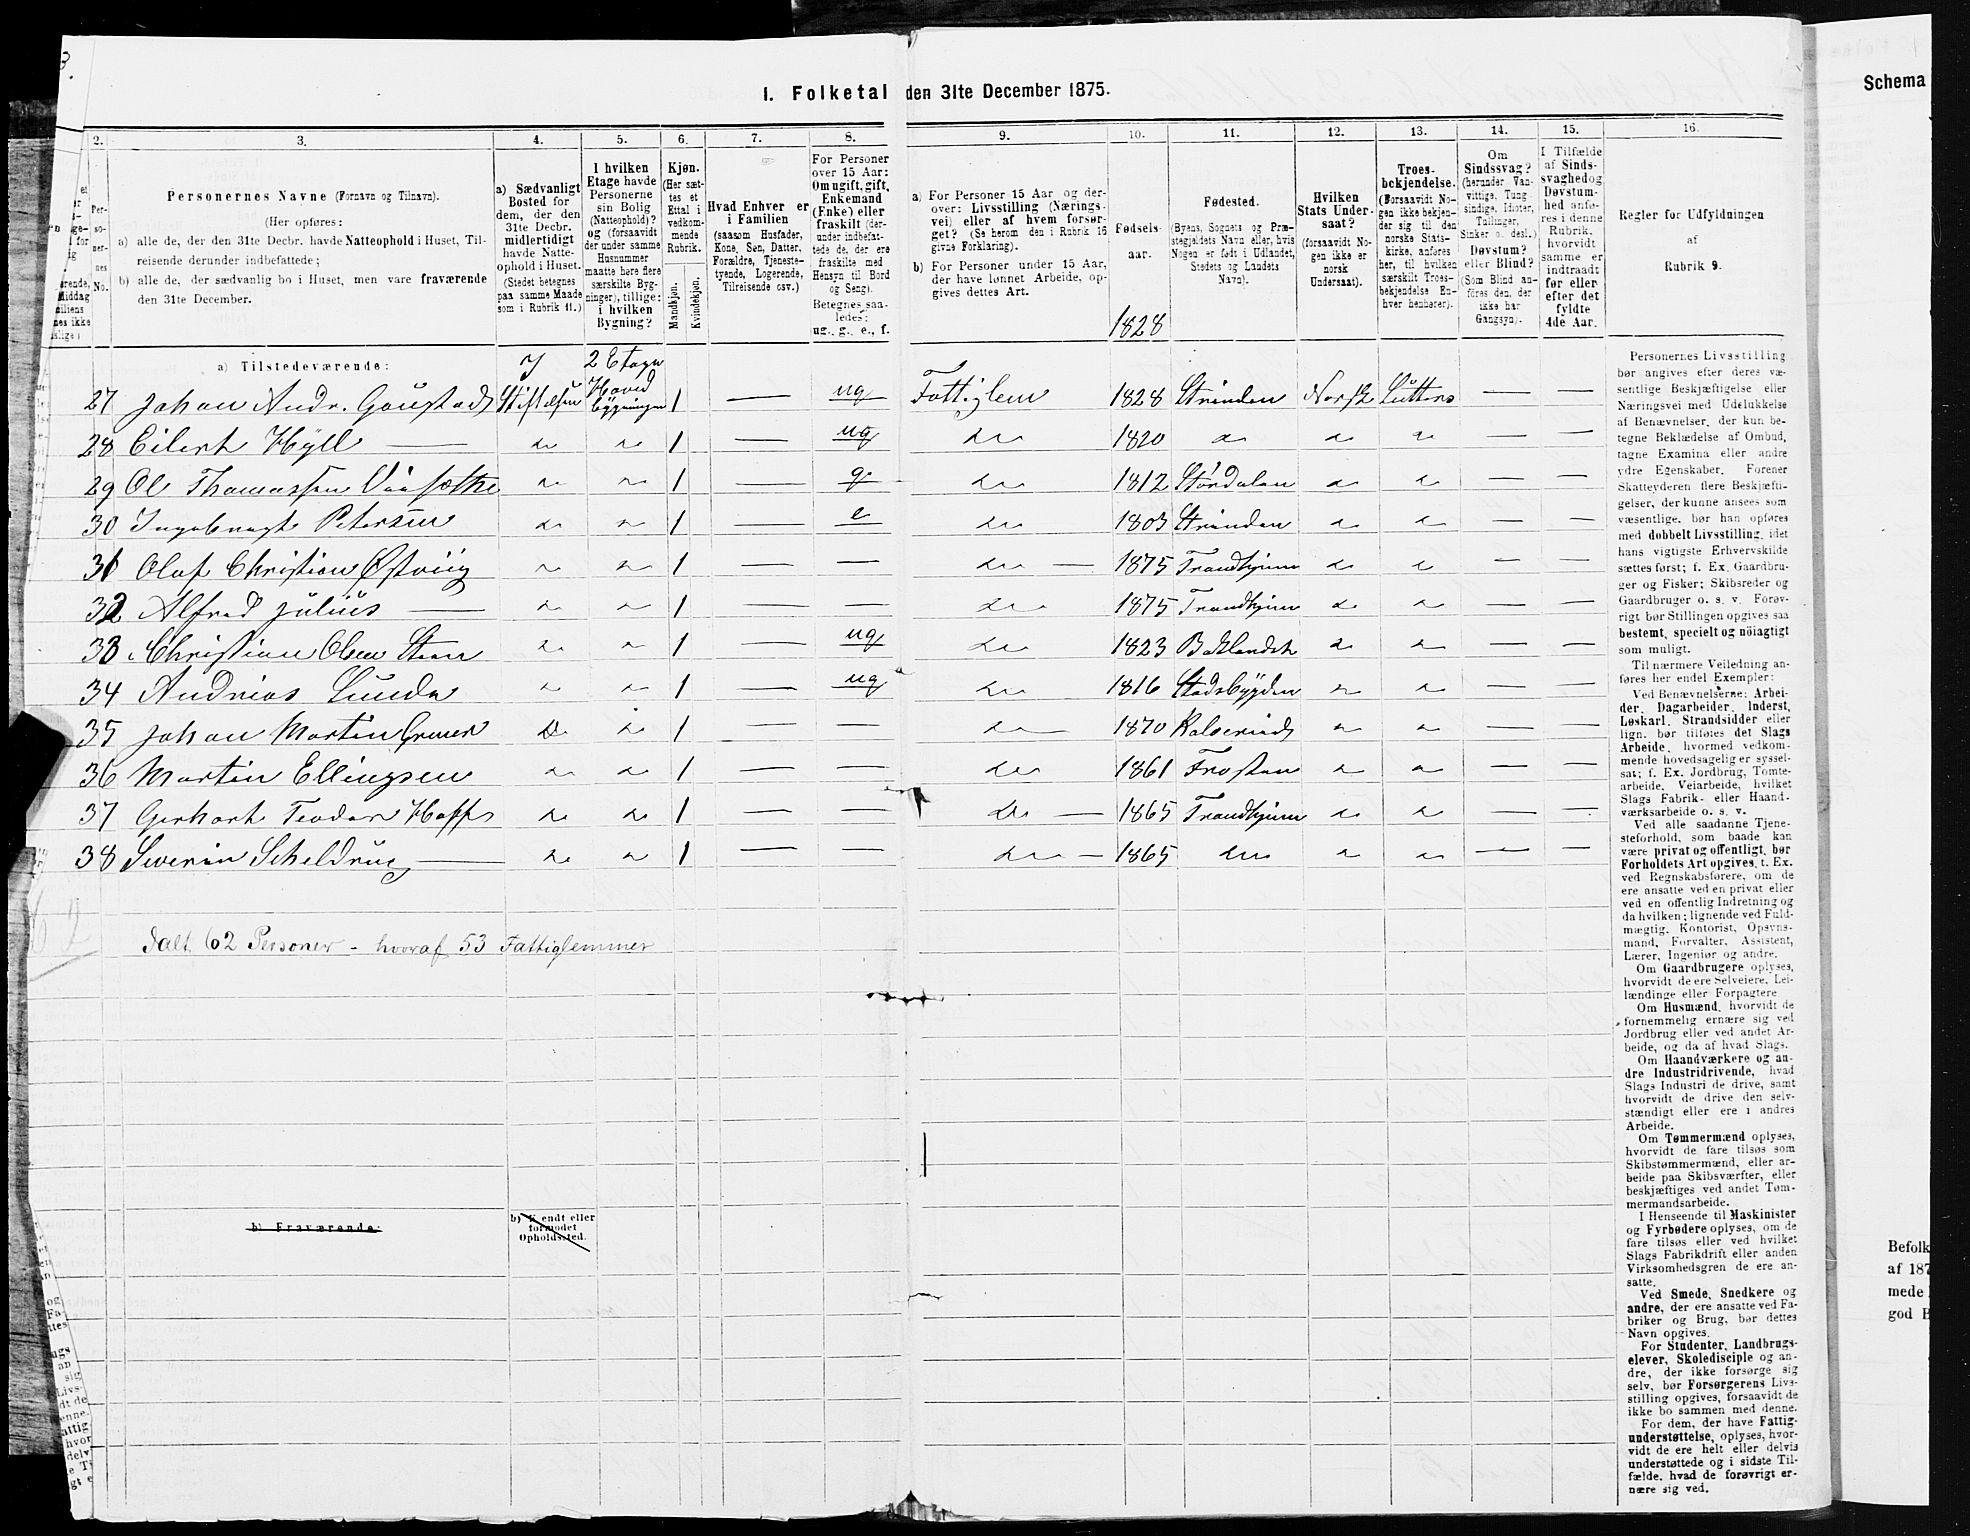 3.
1. Folketal den 31te December 1875.
Schema
2. 3. 4. 5. 6. 7. 8. 9. 10. 11. 12. 13. 14. 15. 16.
Per-
so-
ner-
nes
No.
Personernes Navne (Fornavn og Tilnavn).
(Her opføres:
a) alle de, der den 31te Decbr. havde Natteophold i Huset, Til-
reisende derunder indbefattede;
b) alle de, der sædvanlig bo i Huset, men vare fraværende
den 31te December.
a) Sædvanligt
Bosted for
dem, der den
31te Decbr.
midlertidigt
havde Natte-
ophold i Huset.
(Stedet betegnes
paa samme Maade
som i Rubrik 11.)
I hvilken
Etage havde
Personerne
sin Bolig
(Natteophold)?
og (forsaavidt
der under samme
Husnummer
maatte høre flere
særskilte Byg-
ninger), tillige:
i hvilken
Bygning?
Kjøn.
(Her sæt-
tes et
Ettal i
vedkom-
mende
Rubrik.
Mandkjøn.
Kvindekjøn.
Hvad Enhver er
i Familien
(saasom Husfader,
Kone, Søn, Datter,
Forældre, Tjeneste-
tyende, Logerende,
Tilreisende osv.)
For Personer
over 15 Aar:
Om ugift, gift,
Enkemand
(Enke) eller
fraskilt (der-
under indbefat-
tede de, der ere
fraskilte med
Hensyn til Bord
og Seng).
Betegnes saa-
ledes:
ug., g., e., f.
a) For Personer 15 Aar og der-
over: Livsstilling (Nærings-
vei) eller af hvem forsør-
get? (Se herom den i Rubrik 16
givne Forklaring).
b) For Personer under 15 Aar,
der have lønnet Arbeide, op-
gives dettes Art.
Fødsels-
aar.
1828
Fødested.
(Byens, Sognets og Præ-
stegjeldets Navn eller, hvis
Nogen er født i Udlandet,
Stedets og Landets
Navn).
Hvilken
Stats Under-
saat?
(forsaavidt No-
gen ikke er
norsk
Undersaat).
Troes-
bekjendelse.
(Forsaavidt No-
gen ikke bekjen-
der sig til den
norske Stats-
kirke, anføres
her, til hvilken
særskilt Troes-
bekjendelse En-
hver henhører).
Om
Sindssvag?
(herunder Van-
vittige, Tung-
sindige, Idioter,
Tullinger,
Sinker o. desl.)
Døvstum?
eller Blind?
(Som Blind an-
føres den, der
ikke har
Gangsyn).
I Tilfælde
af Sinds-
svaghed og
Døvstum-
hed anfø-
res i denne
Rubrik,
hvorvidt
samme er
indtraadt
før eller
efter det
fyldte
4de Aar.
Regler for Udfyldningen
af
Rubrik 9.
a) Tilstedeværende:
2 Etage
27 Johan Andr. Goustad Stiftelsen Hoved Bygningen 1 — ug Fattiglem 1828 Strinden Norsk Luthers — —
28 Eilert Hyll — do do 1 — ug do 1820 do do do — —
29 Ole Thomassen do do 1 — g. do 1812 Størdalen do do — —
30 Ingebregt Petersen do do 1 — e do 1803 Strinden do do — —
31 Oluf Christian Østviig do do 1 — — do — 1875 Trondhjem do do — —
32 Alfred Julius — do do 1 — — do 1875 Trondhjem do do — —
33 Christian Olsen Steen do do 1 — ug do 1823 Baklandet do do — —
34 Andreas Lunde do do 1 — ug do 1816 Stadsbygden do do — —
35 Johan Martin do do 1 — — do 1870 do do — —
36 Martin Ellingsen do do 1 — — do 1861 Frosten do do — —
37 Gerhart Teodor Hoff do do 1 — — do — 1865 Trondhjem do do — —
38 Severin Scheldrug — do do 1 — — do — 1865 do do do — —
Ialt 62 Personer - hvoraf 53 Fattiglemmer
b) Fraværende:
b) Kjendt eller
formodet
Opholdssted.
Personernes Livsstilling
bør angives efter deres væ-
sentlige Beskjæftigelse eller
Næringsvei med Udelukkelse
af Benævnelser, der kun be-
tegne Beklædelse af Ombud,
tagne Examina eller andre
ydre Egenskaber. Forener
Skatteyderen flere Beskjæfti-
gelser, der kunne ansees som
væsentlige, bør han opføres
med dobbelt Livsstilling, idet
hans vigtigste Erhvervskilde
sættes først; f. Ex. Gaardbru-
ger og Fisker; Skibsreder og
Gaardbruger o. s. v. Forøv-
rigt bør Stillingen opgives saa
bestemt, specielt og nöiagtigt
som muligt.
Til nærmere Veiledning an-
føres her endel Exempler:
Ved Benævnelserne: Arbei-
der, Dagarbeider, Inderst,
Løskarl, Strandsidder eller
lign. bør tilføies det Slags
Arbeide, hvormed vedkom-
mende hovedsagelig er syssel-
sat; f. Ex. Jordbrug, Tomte-
arbeide, Veiarbeide, hvilket
Slags Fabrik- eller Haand-
værksarbeide o. s. v.
Ved alle saadanne Tjene-
steforhold, som baade kan
være privat og offentligt, bør
Forholdets Art opgives, t. Ex.
ved Regnskabsførere, om de
ere ansatte ved en privat eller
ved en offentlig Indretning og
da hvilken; lignende ved Fuld-
mægtig, Kontorist, Opsyns-
mand, Forvalter, Assistent,
Lærer, Ingeniør og andre.
Om Gaardbrugere oplyses,
hvorvidt de ere Selveiere, Lei-
lændinge eller Forpagtere
Om Husmænd, hvorvidt de
fornemmelig ernære sig ved
Jordbrug eller ved andet Ar-
beide, og da af hvad Slags.
Om Haandværkere og an-
dre Industridrivende, hvad
Slags Industri de drive, samt
hvorvidt de drive den selv-
stændigt eller ere i andres
Arbeide.
Om Tømmermænd oplyses,
hvorvidt de fare tilsøs som
Skibstømmermænd, eller ar-
beide paa Skibsværfter, eller
beskjæftiges ved andet Tøm-
mermandsarbeide.
I Henseende til Maskinister
og Fyrbødere oplyses, om de
fare tilsøs eller ved hvilket
Slags Fabrikdrift eller anden
Virksomhedsgren de ere an-
satte.
Ved Smede, Snedkere og
andre, der ere ansatte ved Fa-
briker og Brug, bør dettes
Navn opgives.
For Studenter, Landbrugs-
elever, Skoledisciple og an-
dre, der ikke forsørge sig
selv, bør Forsørgerens Livs-
stilling opgives, forsaavidt de
ikke bo sammen med denne.
For dem, der have Fattig-
understøttelse, oplyses, hvor-
vidt de ere helt eller delvis
understøttede og i sidste Til-
fælde, hvad de forøvrigt er-
nære sig ved.
Befolk
af 187
mede
god B